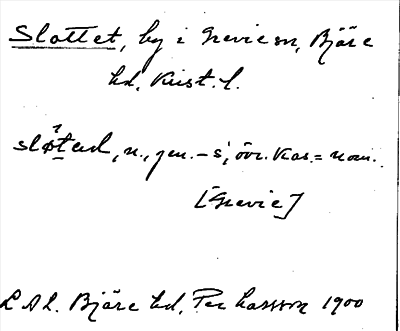 Slottet, by i Grevie sn, Bjäre
hd, Krist. l.
slo̱təd, n., gen. – s', övr. kas. = nom.
[Grevie]
L A L. Bjäre hd, Per Larsson 1900